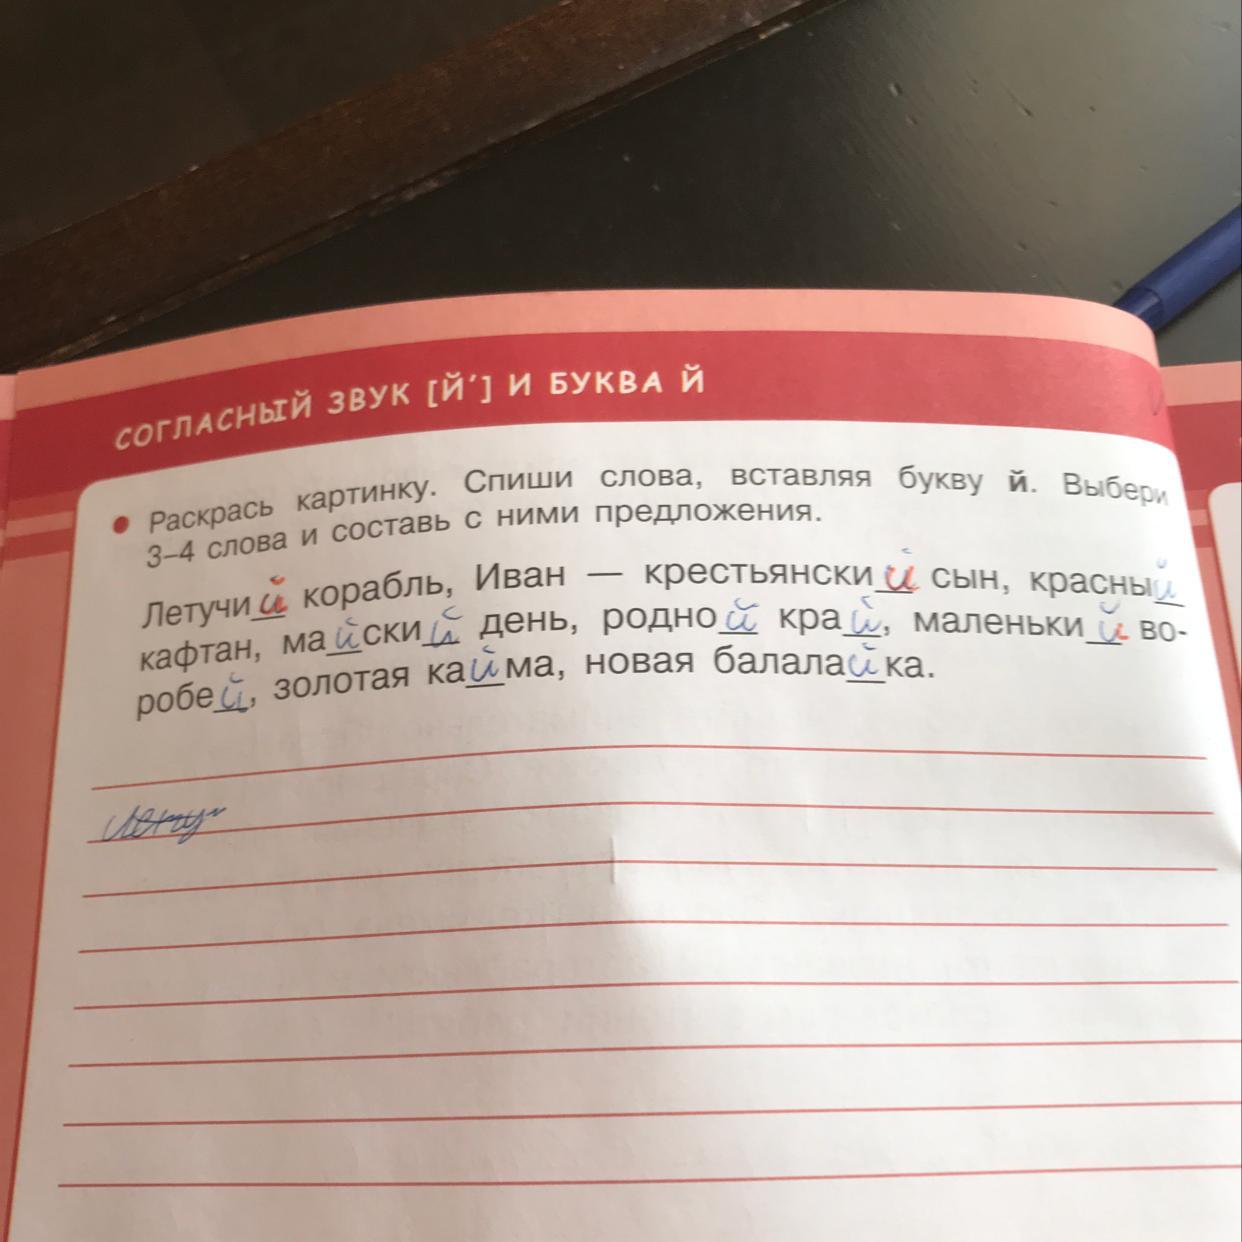 СОГЛАСНЫЙ ЗВУК [Й′] И БУКВА Й
• Раскрась картинку. Спиши слова, вставляя букву й. Выбери
3–4 слова и составь с ними предложения.
Летучий корабль, Иван — крестьянский сын, красный
кафтан, майский день, родной край, маленький во-
робей, золотая кайма, новая балалайка.
Лету